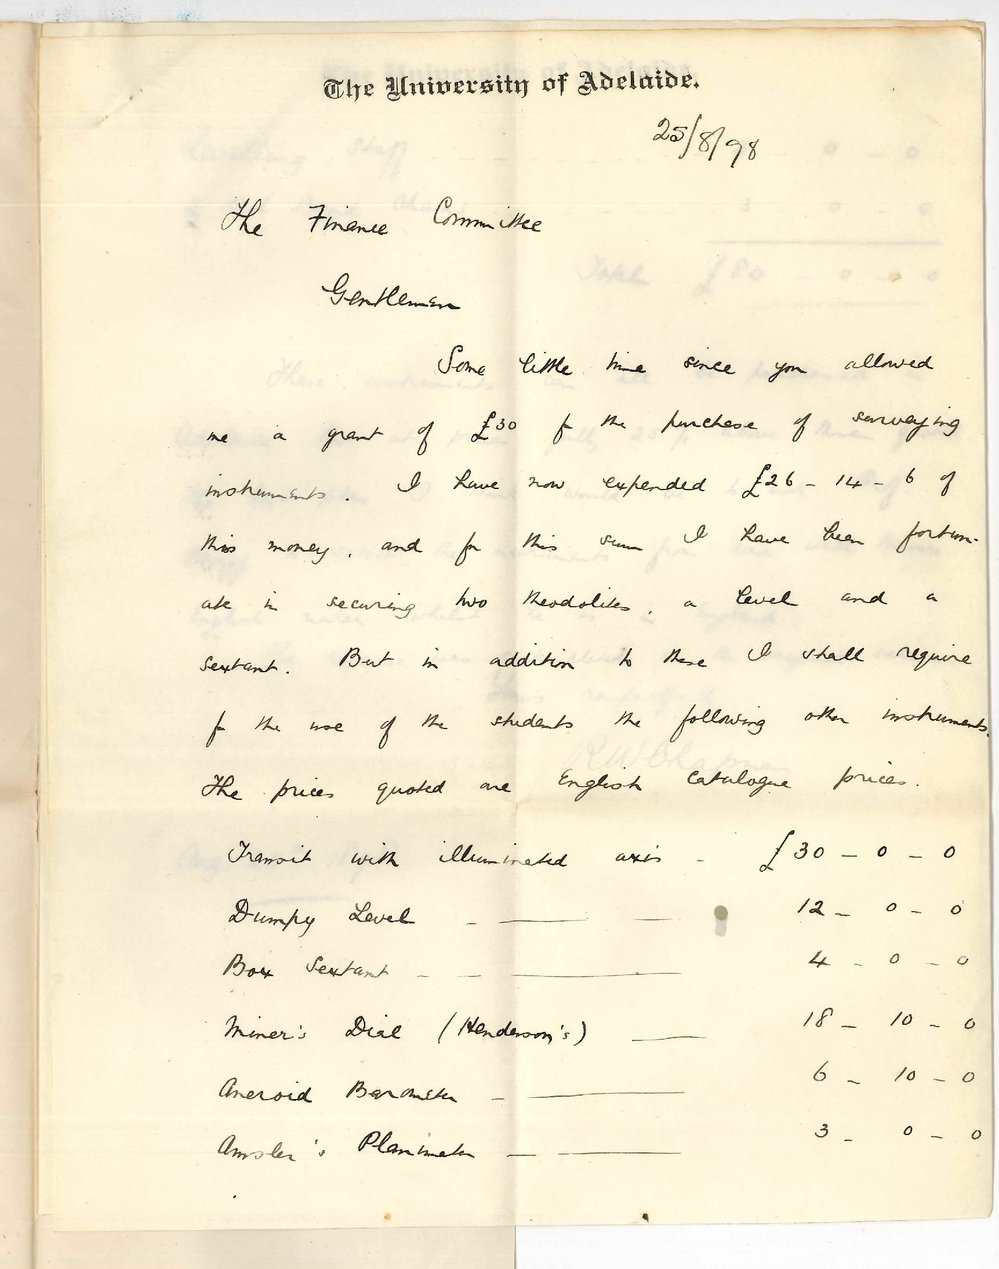 The University of Adelaide.
25/8/98
The Finance Committee
Gentlemen
Some little time since you allowed
me a grant of £30 for the purchase of surveying
instruments. I have now expended £26 - 14 - 6 of
this money, and for this sum I have been fortun-
ate in securing two theodolites, a level and a
sextant. But in addition to these I shall require
for the use of the students the following other instruments.
The prices quoted are English Catalogue prices.
Transit with illuminated axis - £30 - 0 - 0
Dumpy Level - — — 12 - 0 - 0
Box Sextant - - — 4 - 0 - 0
Miner's Dial (Henderson's) — 18 - 10 - 0
Aneroid Barometer - — 6 - 10 - 0
Amsler's Planimeter - — 3 - 0 - 0